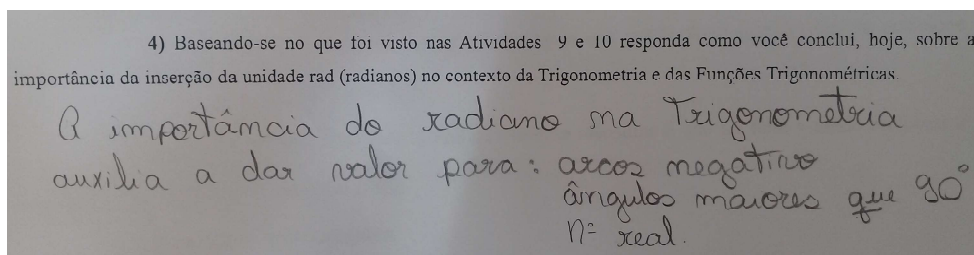 4) Baseando-se no que foi visto nas Atividades 9 e 10 responda como você conclui, hoje, sobre a
importância da inserção da unidade rad (radianos) no contexto da Trigonometria e das Funções Trigonométricas.
A importância do radiano na Trigonometria
auxilia a dar valor para: arcos negativo
ângulos maiores que 90°
nº real.